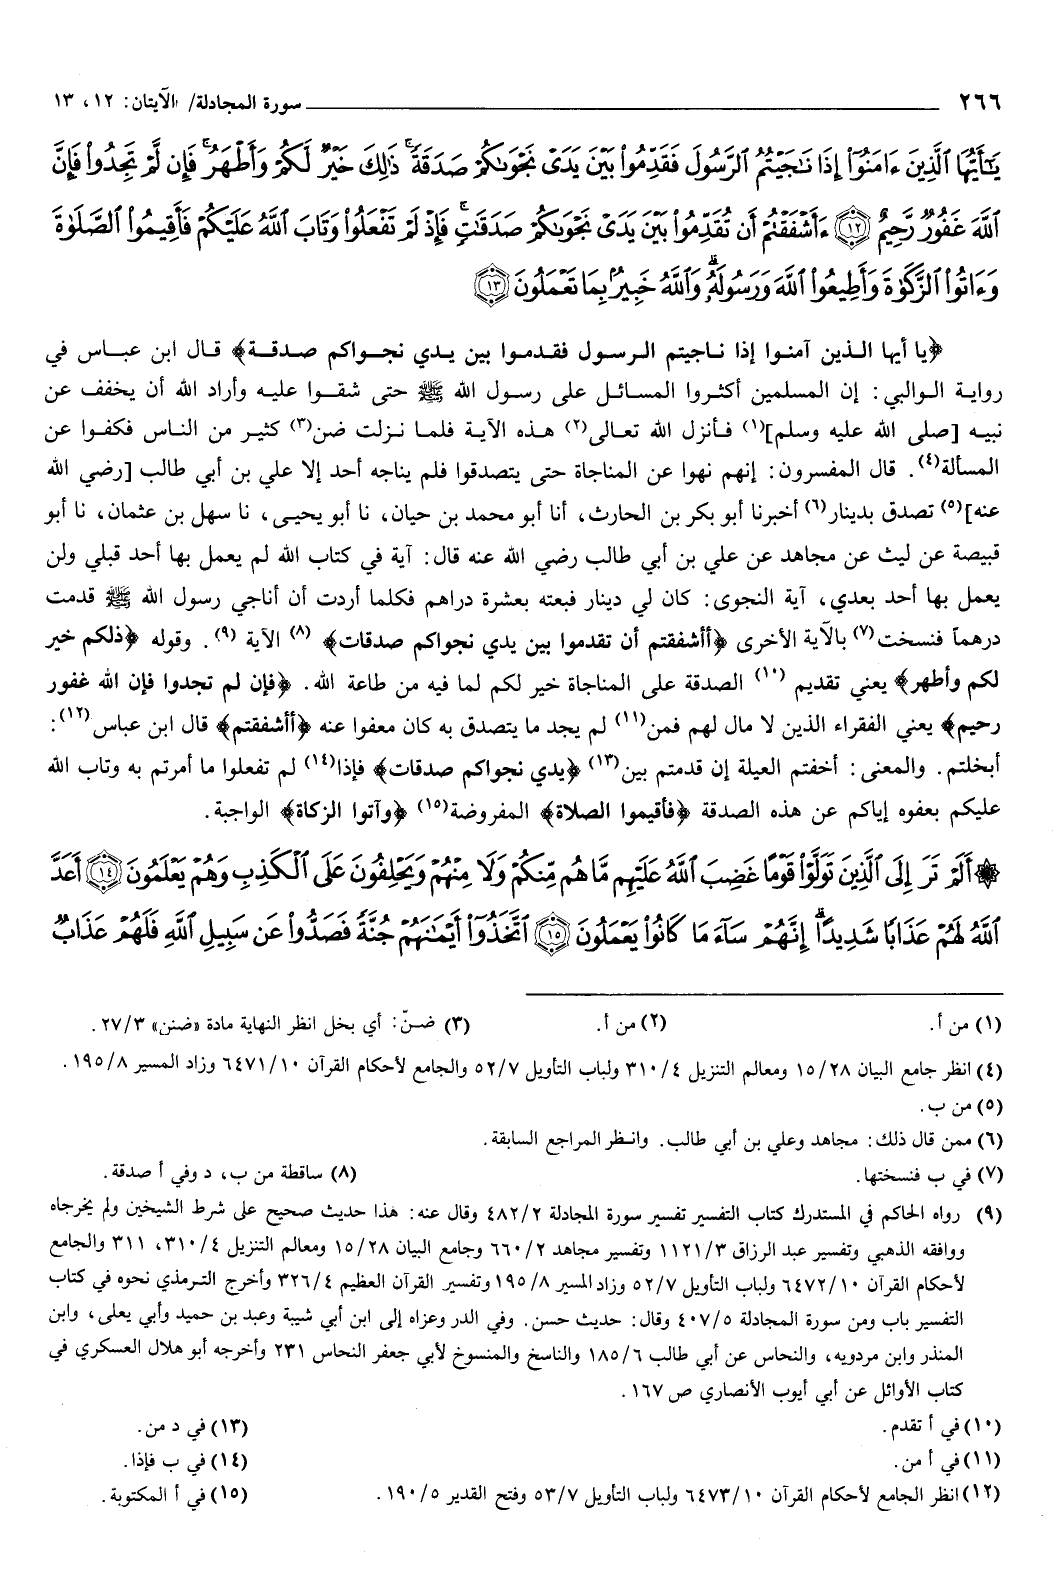 ٢٦٦ سورة المجادلة/ الآيتان: ١٢، ١٣
يَٰٓأَيُّهَا ٱلَّذِينَ ءَامَنُوٓا۟ إِذَا نَٰجَيْتُمُ ٱلرَّسُولَ فَقَدِّمُوا۟ بَيْنَ يَدَىْ نَجْوَىٰكُمْ صَدَقَةً ۚ ذَٰلِكَ خَيْرٌ لَّكُمْ وَأَطْهَرُ ۚ فَإِن لَّمْ تَجِدُوا۟ فَإِنَّ
ٱللَّهَ غَفُورٌ رَّحِيمٌ ﴿١٢﴾ ءَأَشْفَقْتُمْ أَن تُقَدِّمُوا۟ بَيْنَ يَدَىْ نَجْوَىٰكُمْ صَدَقَٰتٍ ۚ فَإِذْ لَمْ تَفْعَلُوا۟ وَتَابَ ٱللَّهُ عَلَيْكُمْ فَأَقِيمُوا۟ ٱلصَّلَوٰةَ
وَءَاتُوا۟ ٱلزَّكَوٰةَ وَأَطِيعُوا۟ ٱللَّهَ وَرَسُولَهُۥ ۗ وَٱللَّهُ خَبِيرٌۢ بِمَا تَعْمَلُونَ ﴿١٣﴾
﴿يا أيها الذين آمنوا إذا ناجيتم الرسول فقدموا بين يدي نجواكم صدقة﴾ قال ابن عباس في
رواية الوالبي: إن المسلمين أكثروا المسائل على رسول الله ﷺ حتى شقوا عليه وأراد الله أن يخفف عن
نبيه [صلى الله عليه وسلم](١) فأنزل الله تعالى(٢) هذه الآية فلما نزلت ضن(٣) كثير من الناس فكفوا عن
المسألة(٤). قال المفسرون: إنهم نهوا عن المناجاة حتى يتصدقوا فلم يناجه أحد إلا علي بن أبي طالب [رضي الله
عنه](٥) تصدق بدينار(٦) أخبرنا أبو بكر بن الحارث، أنا أبو محمد بن حيان، نا أبو يحيى، نا سهل بن عثمان، نا أبو
قبيصة عن ليث عن مجاهد عن علي بن أبي طالب رضي الله عنه قال: آية في كتاب الله لم يعمل بها أحد قبلي ولن
يعمل بها أحد بعدي، آية النجوى: كان لي دينار فبعته بعشرة دراهم فكلما أردت أن أناجي رسول الله ﷺ قدمت
درهماً فنسخت(٧) بالآية الأخرى ﴿أأشفقتم أن تقدموا بين يدي نجواكم صدقات﴾ (٨) الآية (٩). وقوله ﴿ذلكم خير
لكم وأطهر﴾ يعني تقديم (١٠) الصدقة على المناجاة خير لكم لما فيه من طاعة الله. ﴿فإن لم تجدوا فإن الله غفور
رحيم﴾ يعني الفقراء الذين لا مال لهم فمن(١١) لم يجد ما يتصدق به كان معفوا عنه ﴿أأشفقتم﴾ قال ابن عباس(١٢):
أبخلتم. والمعنى: أخفتم العيلة إن قدمتم بين(١٣) ﴿يدي نجواكم صدقات﴾ فإذا(١٤) لم تفعلوا ما أمرتم به وتاب الله
عليكم بعفوه إياكم عن هذه الصدقة ﴿فأقيموا الصلاة﴾ المفروضة(١٥) ﴿وآتوا الزكاة﴾ الواجبة.
۞ أَلَمْ تَرَ إِلَى ٱلَّذِينَ تَوَلَّوْا۟ قَوْمًا غَضِبَ ٱللَّهُ عَلَيْهِم مَّا هُم مِّنكُمْ وَلَا مِنْهُمْ وَيَحْلِفُونَ عَلَى ٱلْكَذِبِ وَهُمْ يَعْلَمُونَ ﴿١٤﴾ أَعَدَّ
ٱللَّهُ لَهُمْ عَذَابًا شَدِيدًا ۖ إِنَّهُمْ سَآءَ مَا كَانُوا۟ يَعْمَلُونَ ﴿١٥﴾ ٱتَّخَذُوٓا۟ أَيْمَٰنَهُمْ جُنَّةً فَصَدُّوا۟ عَن سَبِيلِ ٱللَّهِ فَلَهُمْ عَذَابٌ
(١) من أ. (٢) من أ. (٣) ضنّ: أي بخل انظر النهاية مادة «ضنن» ٢٧/٣.
(٤) انظر جامع البيان ١٥/٢٨ ومعالم التنزيل ٣١٠/٤ ولباب التأويل ٥٢/٧ والجامع لأحكام القرآن ٦٤٧١/١٠ وزاد المسير ١٩٥/٨.
(٥) من ب.
(٦) ممن قال ذلك: مجاهد وعلي بن أبي طالب. وانظر المراجع السابقة.
(٧) في ب فنسختها. (٨) ساقطة من ب، د وفي أ صدقة.
(٩) رواه الحاكم في المستدرك كتاب التفسير تفسير سورة المجادلة ٤٨٢/٢ وقال عنه: هذا حديث صحيح على شرط الشيخين ولم يخرجاه
ووافقه الذهبي وتفسير عبد الرزاق ١١٢١/٣ وتفسير مجاهد ٦٦٠/٢ وجامع البيان ١٥/٢٨ ومعالم التنزيل ٣١٠/٤، ٣١١ والجامع
لأحكام القرآن ٦٤٧٢/١٠ ولباب التأويل ٥٢/٧ وزاد المسير ١٩٥/٨ وتفسير القرآن العظيم ٣٢٦/٤ وأخرج الترمذي نحوه في كتاب
التفسير باب ومن سورة المجادلة ٤٠٧/٥ وقال: حديث حسن. وفي الدر وعزاه إلى ابن أبي شيبة وعبد بن حميد وأبي يعلى، وابن
المنذر وابن مردويه، والنحاس عن أبي طالب ١٨٥/٦ والناسخ والمنسوخ لأبي جعفر النحاس ٢٣١ وأخرجه أبو هلال العسكري في
كتاب الأوائل عن أبي أيوب الأنصاري ص ١٦٧.
(١٠) في أ تقدم. (١٣) في د من.
(١١) في أ من. (١٤) في ب فإذا.
(١٢) انظر الجامع لأحكام القرآن ٦٤٧٣/١٠ ولباب التأويل ٥٣/٧ وفتح القدير ١٩٠/٥. (١٥) في أ المكتوبة.